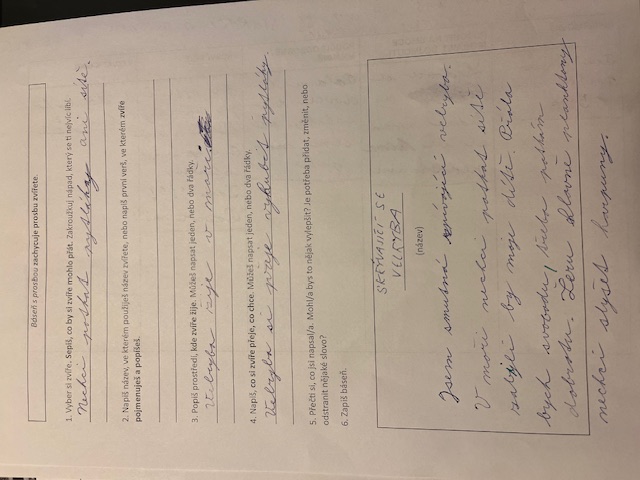 Báseň s prosbou zachycuje prosbu zvířete.
1. Vyber si zvíře. Sepiš, co by si zvíře mohlo přát. Zakroužkuj nápad, který se ti nejvíc líbí.
Nechci potkat pytláky ani sítě.
2. Napiš název, ve kterém použiješ název zvířete, nebo napiš první verš, ve kterém zvíře
pojmenuješ a popíšeš.
3. Popiš prostředí, kde zvíře žije. Můžeš napsat jeden, nebo dva řádky.
Velryba žije v moři
4. Napiš, co si zvíře přeje, co chce. Můžeš napsat jeden, nebo dva řádky.
Velryba si přeje vyhubit pytláky.
5. Přečti si, co jsi napsal/a. Mohl/a bys to nějak vylepšit? Je potřeba přidat, změnit, nebo
odstranit nějaké slovo?
6. Zapiš báseň.
VELRYBA
(název)
Jsem smutná zpívající velryba.
V moři nechci potkat sítě
zabili by moje dítě Přála
bych svobodu, třeba
dobrotu. Žeru hlavně planktony
nechci slyšet harpuny.